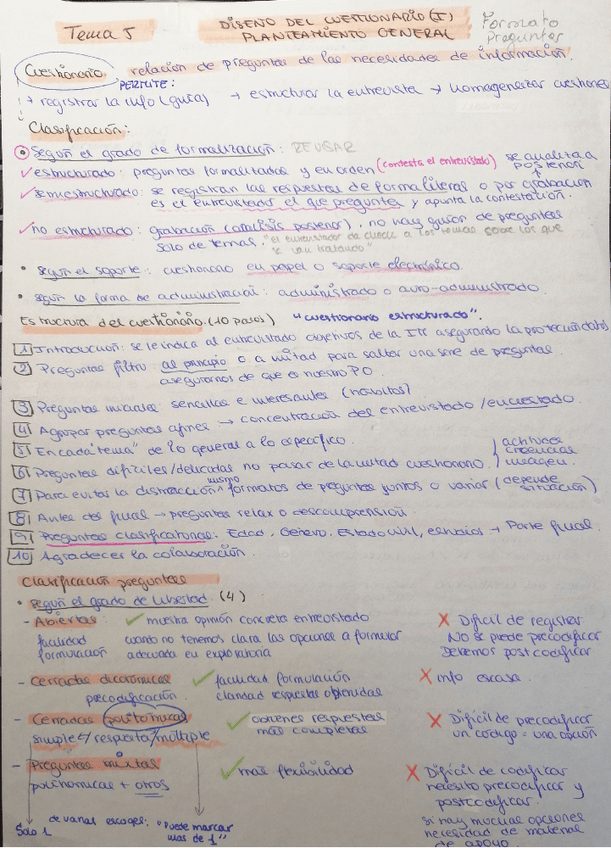 Tema 5
DISEÑO DEL CUESTIONARIO (I)
PLANTEAMIENTO GENERAL
Formato
Preguntas
Cuestionario: relación de preguntas de las necesidades de información.
PERMITE:
→ registrar la info (guía) → estructurar la entrevista → homogeneizar cuestiones
Clasificación:
Según el grado de formalización: REVISAR
✓ estructurado: preguntas formalizadas y en orden (contesta el entrevistado) se analiza a
posteriori
✓ semiestructurado: se registran las respuestas de forma literal o por grabación
es el entrevistador el que pregunta y apunta la contestación.
✓ no estructurado: grabación (análisis posterior), no hay guión de preguntas
solo de temas. "el entrevistador da a los temas sobre los que
se van tratando"
• Según el soporte: cuestionario en papel o soporte electrónico.
• Según la forma de administración: administrado o auto-administrado.
Estructura del cuestionario (10 pasos) "cuestionario estructurado".
1 Introducción: se le indica al entrevistado objetivos de la asegurando la
2 Preguntas filtro al principio o a mitad para saltar una serie de preguntas
asegurarnos de que es nuestro PO
3 Preguntas iniciales sencillas e interesantes
4 Agrupar preguntas afines → concentración del entrevistado / encuestado
5 En cada "tema" de lo general a lo específico.
6 Preguntas difíciles/delicadas no pasar de la mitad cuestionario.
actitudes
creencias
imagen.
7 Para evitar la distracción mismo formatos de preguntas juntos o variar (depende
situación)
8 Antes del final → preguntas relax o descompresión.
9 Preguntas clasificatorias: Edad, Género, Estado civil, estudios → Parte final
10 Agradecer la colaboración.
Clasificación preguntas
• Según el grado de libertad. (4)
- Abiertas: ✓ muestra opinión concreta entrevistado
facilidad
formulación
cuando no tenemos clara las opciones a formular
adecuada en exploratoria
X Difícil de registrar
No se puede precodificar
Debemos postcodificar
- Cerradas dicotómicas
precodificación.
✓ facilidad formulación
claridad respuestas obtenidas
X info escasa.
- Cerradas politómicas
simple / respuesta / múltiple
✓ obtienes respuestas
más completas
X Difícil de precodificar
un código = una opción
- Preguntas mixtas
politómicas + otros
✓ más flexibilidad
X Difícil de codificar
necesito precodificar y
postcodificar.
si hay muchas opciones
necesidad de material
de apoyo.
Solo 1
de varias escoges: "Puede marcar
más de 1"